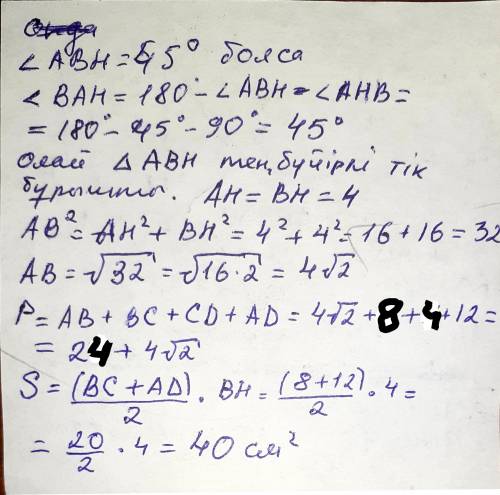 ∠ABH = 45° болса
∠BAH = 180° - ∠ABH - ∠AHB =
= 180° - 45° - 90° = 45°
олай △ABH тең бүйірлі тік
бұрышты. AH = BH = 4
AB² = AH² + BH² = 4² + 4² = 16 + 16 = 32
AB = √32 = √16·2 = 4√2
P = AB + BC + CD + AD = 4√2 + 8 + 4 + 12 =
= 24 + 4√2
S = (BC + AD)/2 · BH = (8 + 12)/2 · 4 =
= 20/2 · 4 = 40 см²